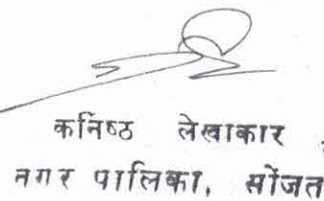 कनिष्ठ लेखाकार
नगर पालिका, सोजत